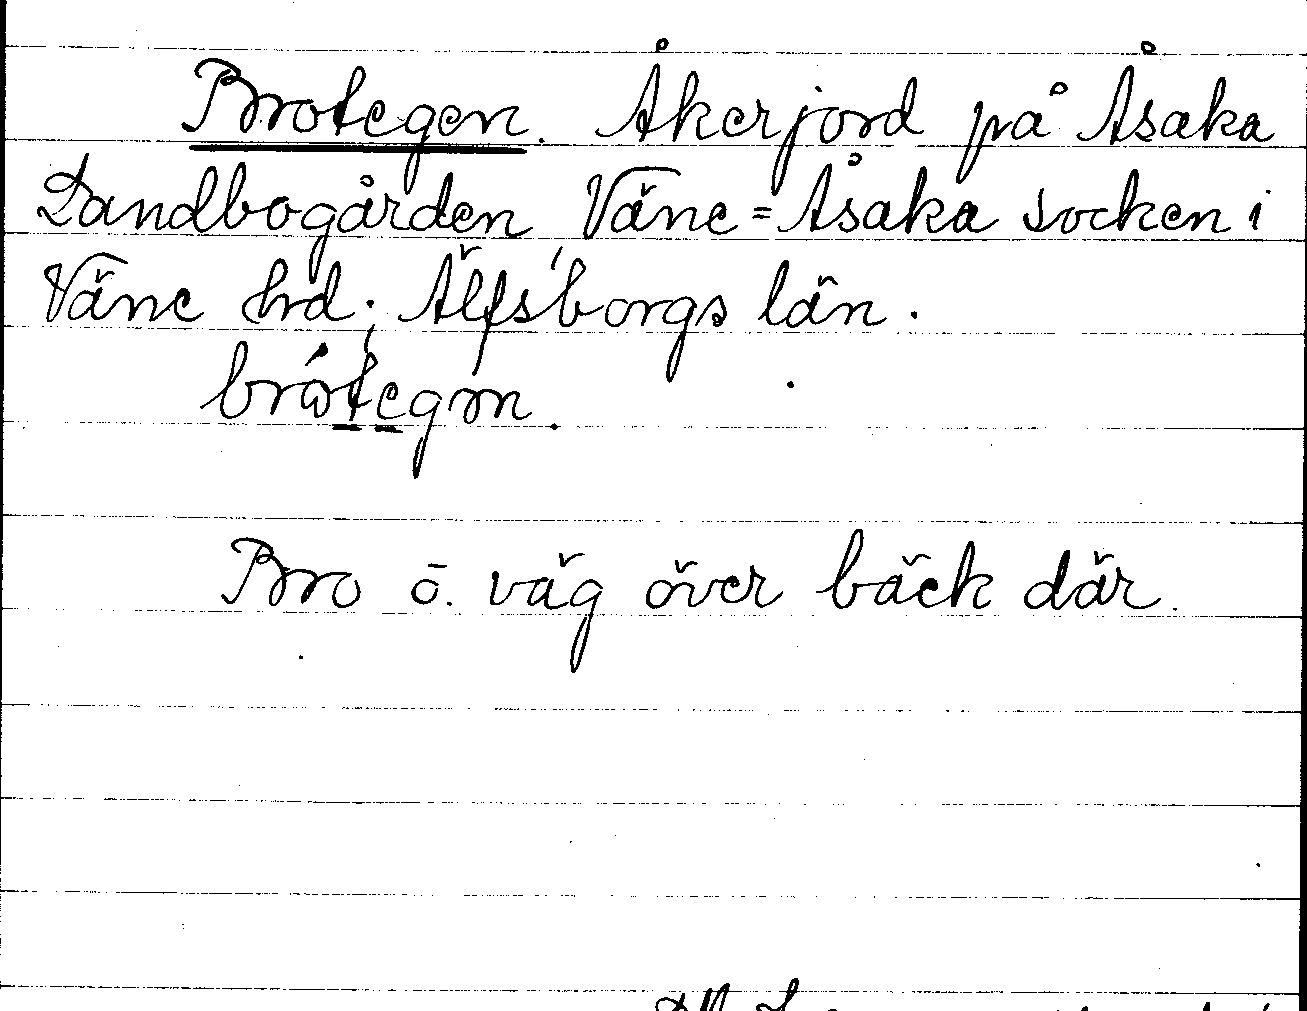 Brotegen. Åkerjord på Åsaka
Landbogården Väne=Åsaka socken i
Väne hrd; Älfsborgs län.
brótegɷn.
Bro o. väg över bäck där.